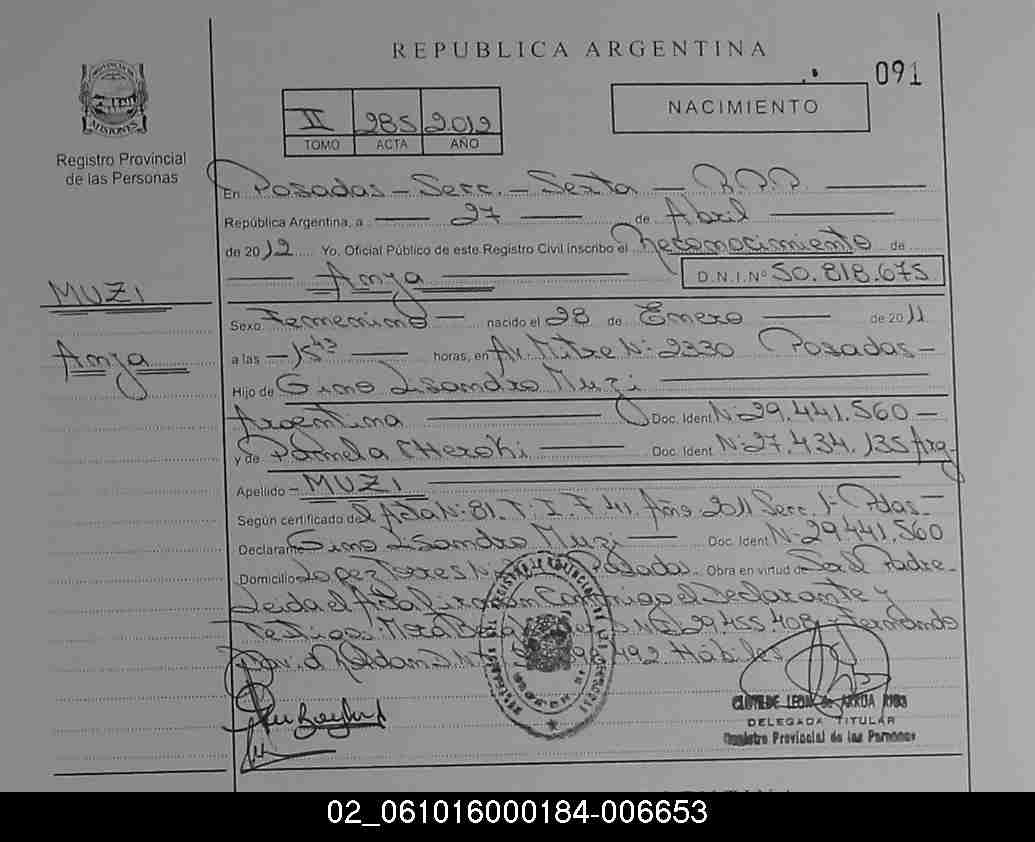 REPUBLICA ARGENTINA
091
PROVINCIA DE
MISIONES
Registro Provincial
de las Personas
II 285 2.012
TOMO ACTA AÑO
NACIMIENTO
En Posadas - Secc. - Sexta - R.P.P.
República Argentina, a 27 de Abril
de 2012 Yo. Oficial Público de este Registro Civil inscribo el Reconocimiento de
Anya D.N.I.Nº 50.818.675
MUZI
Anya
Sexo Femenino - nacido el 28 de Enero de 2011
a las - 15 43 horas, en Av. Mitre Nº 2330 Posadas -
Hijo de Gino Lisandro Muzi
Argentina Doc. Ident Nº 29.441.560 -
y de Pamela Doc. Ident Nº 27.434.135 Arg
Apellido - MUZI
Según certificado del Acta Nº 81. T. I. F 41. Año 2011 Secc. 1º Pdas -
Declarante Gino Lisandro Muzi Doc. Ident Nº 29.441.560
Domicilio Lopez Torres Posadas. Obra en virtud de Ser el Padre -
Leida el Acta Firman Conmigo el Declarante y
Testigos Mora 29.455.408 y Fernando
David Roldan 492 Hábiles
CLOTILDE LEON de ARRUA
DELEGADA TITULAR
Registro Provincial de las Personas
02_061016000184-006653